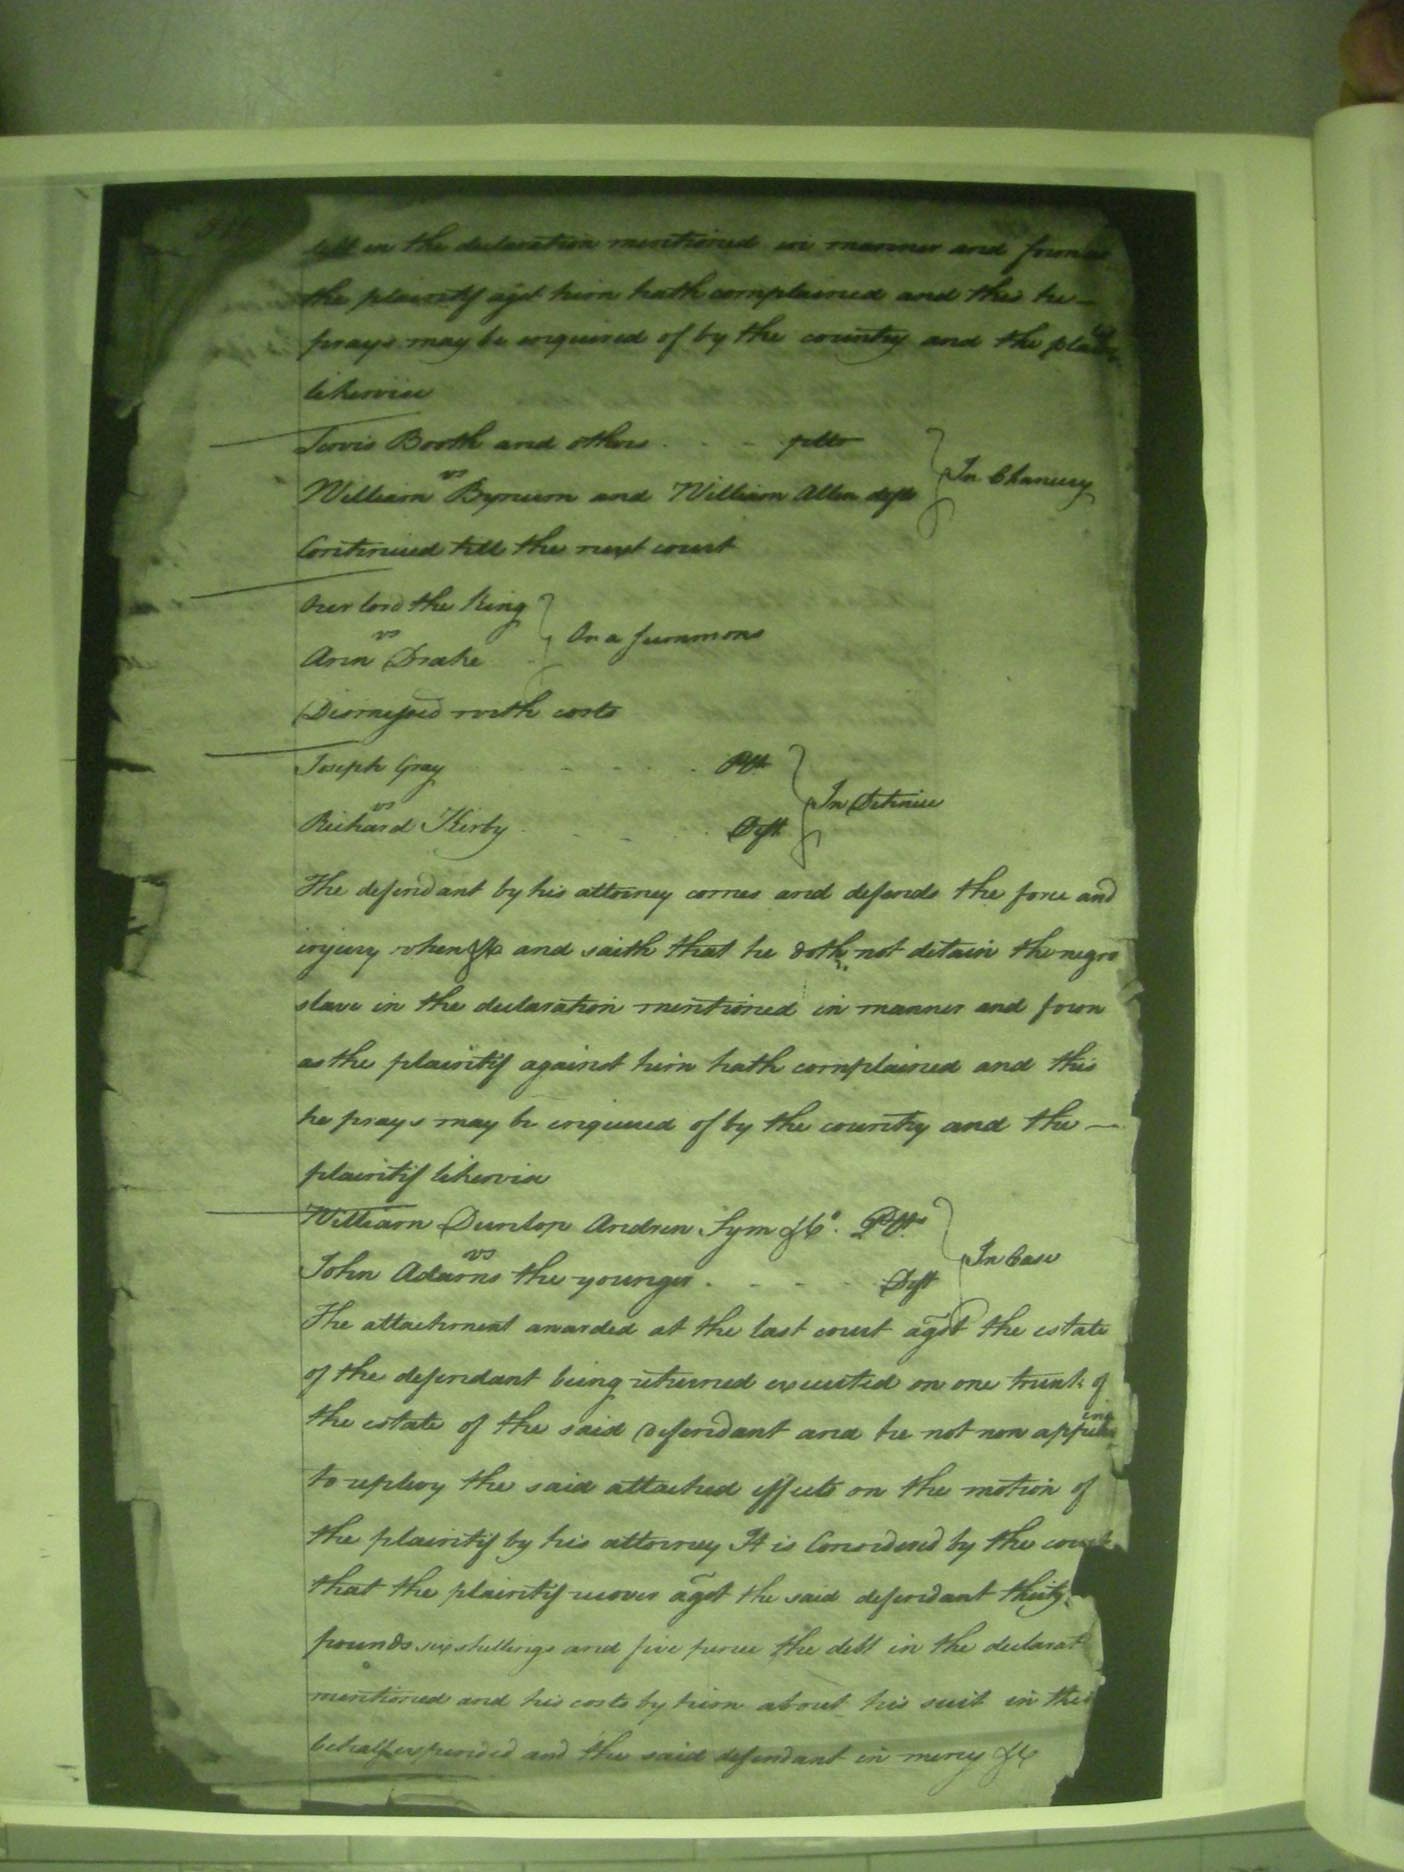 debt in the declaration mentioned in manner and form as
the plaintif agst him hath complained and this he —
prays may be enquired of by the country and the plaintif
likewise
Booth and others . - - pltfs
vs
William Bynum and William Allen defts
In Chancery
Continued till the next court
Our lord the King
vs
Ann Drake
On a summons
Dismissed with costs
Joseph Gray - - - . Plt
vs
Richard Kirby . - - . Deft
In Detinue
The defendant by his attorney comes and defends the force and
injury when &c and saith that he doth not detain the negro
slave in the declaration mentioned in manner and form
as the plaintif against him hath complained and this
he prays may be enquired of by the country and the —
plaintif likewise
William Dunlop Andrew Sym & Co. Plts
vs
John Adams the younger . - - - Deft
In Case
The attachment awarded at the last court agst the estate
of the defendant being returned executed on one trunk of
the estate of the said defendant and he not now appearing
to replevy the said attached effects on the motion of
the plaintif by his attorney It is Considered by the court
that the plaintif recover agst the said defendant thirty
pounds six shillings and five pence the debt in the declarat
mentioned and his costs by him about his suit in this
behalf expended and the said defendant in mercy &c